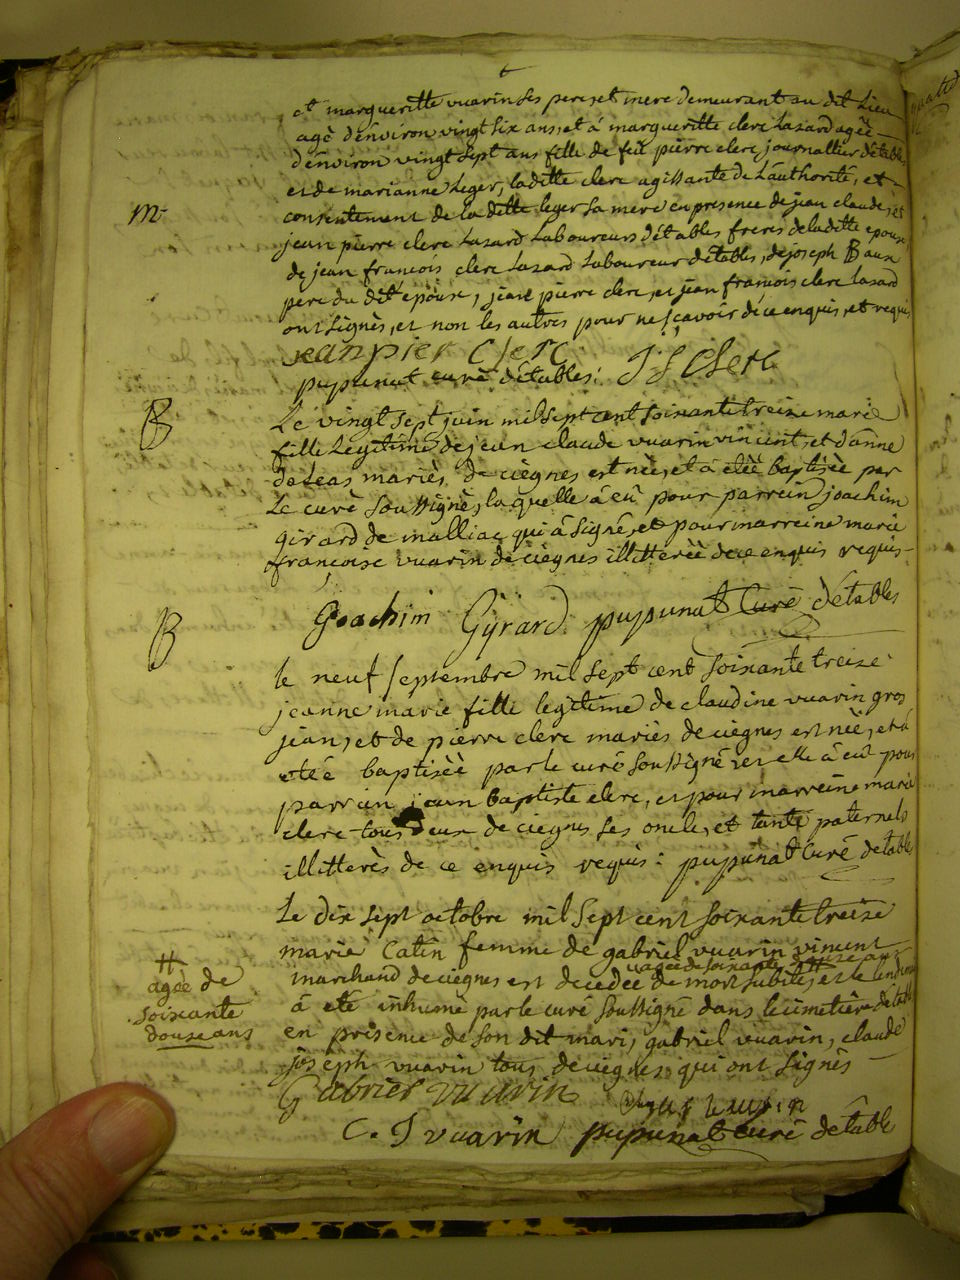 et margueritte vuarin ses pere et mere demeurant au dit Lieu
agè d'environ vingt six ans, et á margueritte clerc Lazard agèe
d'environ vingt sept ans fille de feu pierre clerc journallier d'étables
et de marianne Leger, laditte clerc agissante de L'authorité, et
m
consentement de la ditte leger sa mere en presence de jean claude, et
jean pierre clerc Lazard Laboureurs d'étables freres de laditte epouse
de jean francois clerc Lazard Laboureur d'étables, de joseph Baux
pere du dit époux, jean pierre clerc, et jean francois clerc Lazard
ont signès, et non les autres pour ne sçavoir de ce enquis, et requis
jeanpier Clerc J f Clerc
pupunat curè d'étables:
B
Le vingt sept juin mil sept cent soixante treize marie
fille Legitime de jean claude vuarin vincent, et d'anne
deleas mariès de ciègnes est nèe, et á etèe baptisèe par
Le curè soussignè, la quelle á eû pour parrein joachim
girard de malliac qui á signé, et pour marreine marie
francoise vuarin de ciègnes illitterèe de ce enquis requis
Joachim Gÿrard. pupunat Curè d'étables
B
le neuf septembre mil sept cent soixante treize
jeanne marie fille legitime de claudine vuarin gros
jean, et de pierre clerc mariès de ciègnes est nèe, et á
etèe baptisèe par le curé soussigné et elle á eû pour
parrein jean baptiste clerc, et pour marreine marie
clerc tous deux de ciegnes ses oncle, et tante paternels
illitterès de ce enquis requis: pupunat Curé detables
Le dix sept octobre mil sept cent soixante treize
marie Catin femme de gabriel vuarin vincent
agèe de soixante douze ans
marchand de ciègnes est decedèe de mort subite, et le lendemain
agèe de
soixante
douze ans
á eté inhumé par le curé soussigné dans le cimetière d'étables
en presence de son dit mari, gabriel vuarin, claude
joseph vuarin tous de ciègnes qui ont signès
Gabriel vuarin
C. J vuarin pupunat curé detable